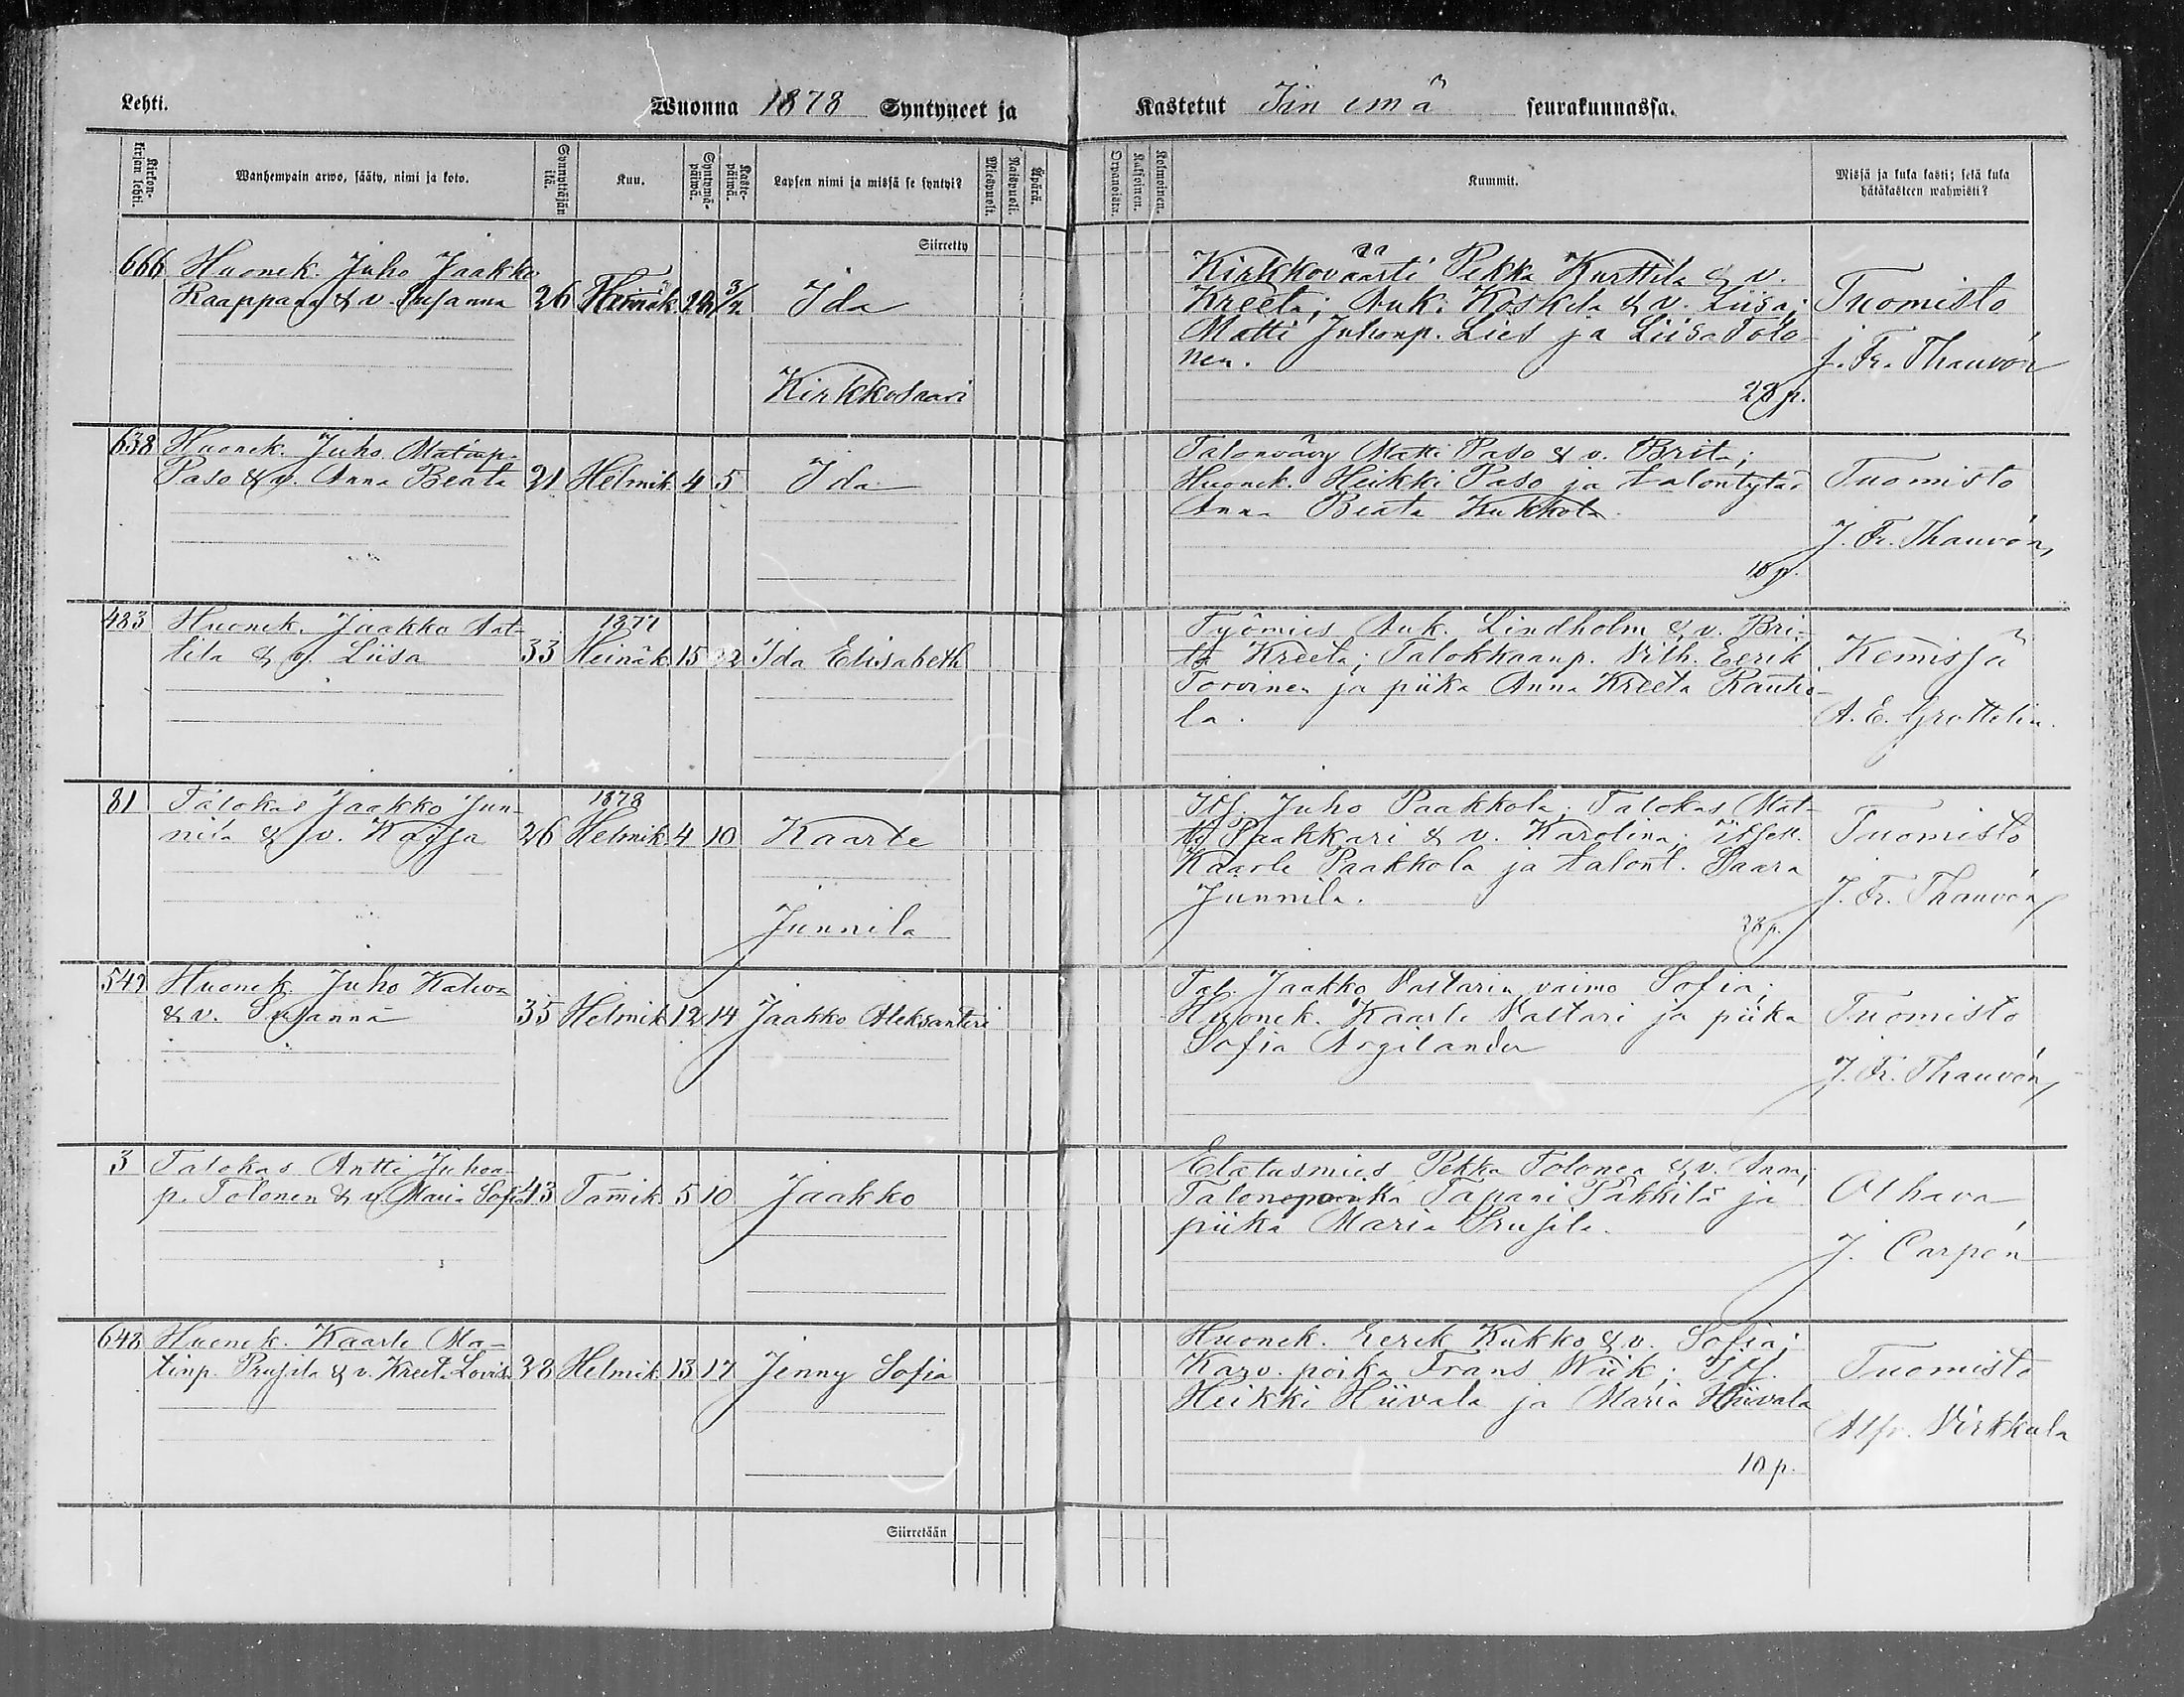 Lehti.
Wuonna 1878 Syntyneet ja
Kastetut Iin emä seurakunnassa.
Kirkonkirjan lehti.
Wanhempain arwo, sääty, nimi ja koto.
Synnyttäjän ikä.
Kuu.
Syntymäpäiwä.
Kastepäiwä.
Lapsen nimi ja missä se syntyi?
Miespuoli.
Naispuoli.
Äpärä.
Kaksoinen.
Kolmoinen.
Kummit.
Missä ja kuka kasti; sekä kuka
hätäkasteen wahwisti?
Siirretty
666 Huonek. Juho Jaakko
Raappana & v. Susanna 26 3/2 Ida
Kirkkosaari
Kirkkoväärti Pekka Kurttila & v.
Kreeta; Auk. Koskela & v. Liisa;
Matti Juhonp. Lies ja Liisa Tolo-
nen.
28 p.
Tuomisto
J. Fr. Thauvón
638 Huonek. Juho Matinp.
Paso & v. Anna Beata 21 Helmik 4 5 Ida
Talonvävy Matti Paso & v. Brita;
Huonek. Heikki Paso ja talontytär
Anna Beata Kukkola.
10 p.
Tuomisto
J. Fr. Thauvón
483 Huonek. Jaakko Aat-
tila & v. Liisa 33 1877 Heinäk 15 22 Ida Elisabeth
Työmies Auk. Lindholm & v. Bri-
ta Kreeta; Talokkaanp. Vilh. Eerik
Torvinen ja piika Anna Kreeta Rautio-
la.
Kemissä
A. E. Grottelin.
81 Talokas Jaakko Jun-
nila & v. Kaisa 26 1878 Helmik 4 10 Kaarle
Junnila
Itsf. Juho Paakkola; Talokas Mat-
ti Paakkari & v. Karolina; Itsell.
Kaarle Paakkola ja talont. Saara
Junnila.
28 p.
Tuomisto
J. Fr. Thauvón
549 Huonek. Juho Kaleva
& v. Susanna 35 Helmik 12 14 Jaakko Aleksanteri
Tal. Jaakko Vastarin vaimo Sofia;
Huonek. Kaarle Vastari ja piika
Sofia Argilander
Tuomisto
J. Fr. Thauvón
3 Talokas Antti Juhon-
p. Tolonen & v. Maria Sofia 43 Tam̄ik 5 10 Jaakko
Elatusmies Pekka Tolonen & v. Anna;
Talonpoika Tapani Pakkila ja
piika Maria Prusila.
Olhava
J. Carpén
648 Huonek. Kaarle Ma-
tinp. Prusila & v. Kreeta Lovisa 38 Helmik 13 17 Jenny Sofia
Huonek. Eerik Kukko & v. Sofia;
Karv. poika Frans Wiik; Itsf.
Heikki Hiivala ja Maria Hiivala
10 p.
Tuomisto
Alfr. Virkkula
Siirretään